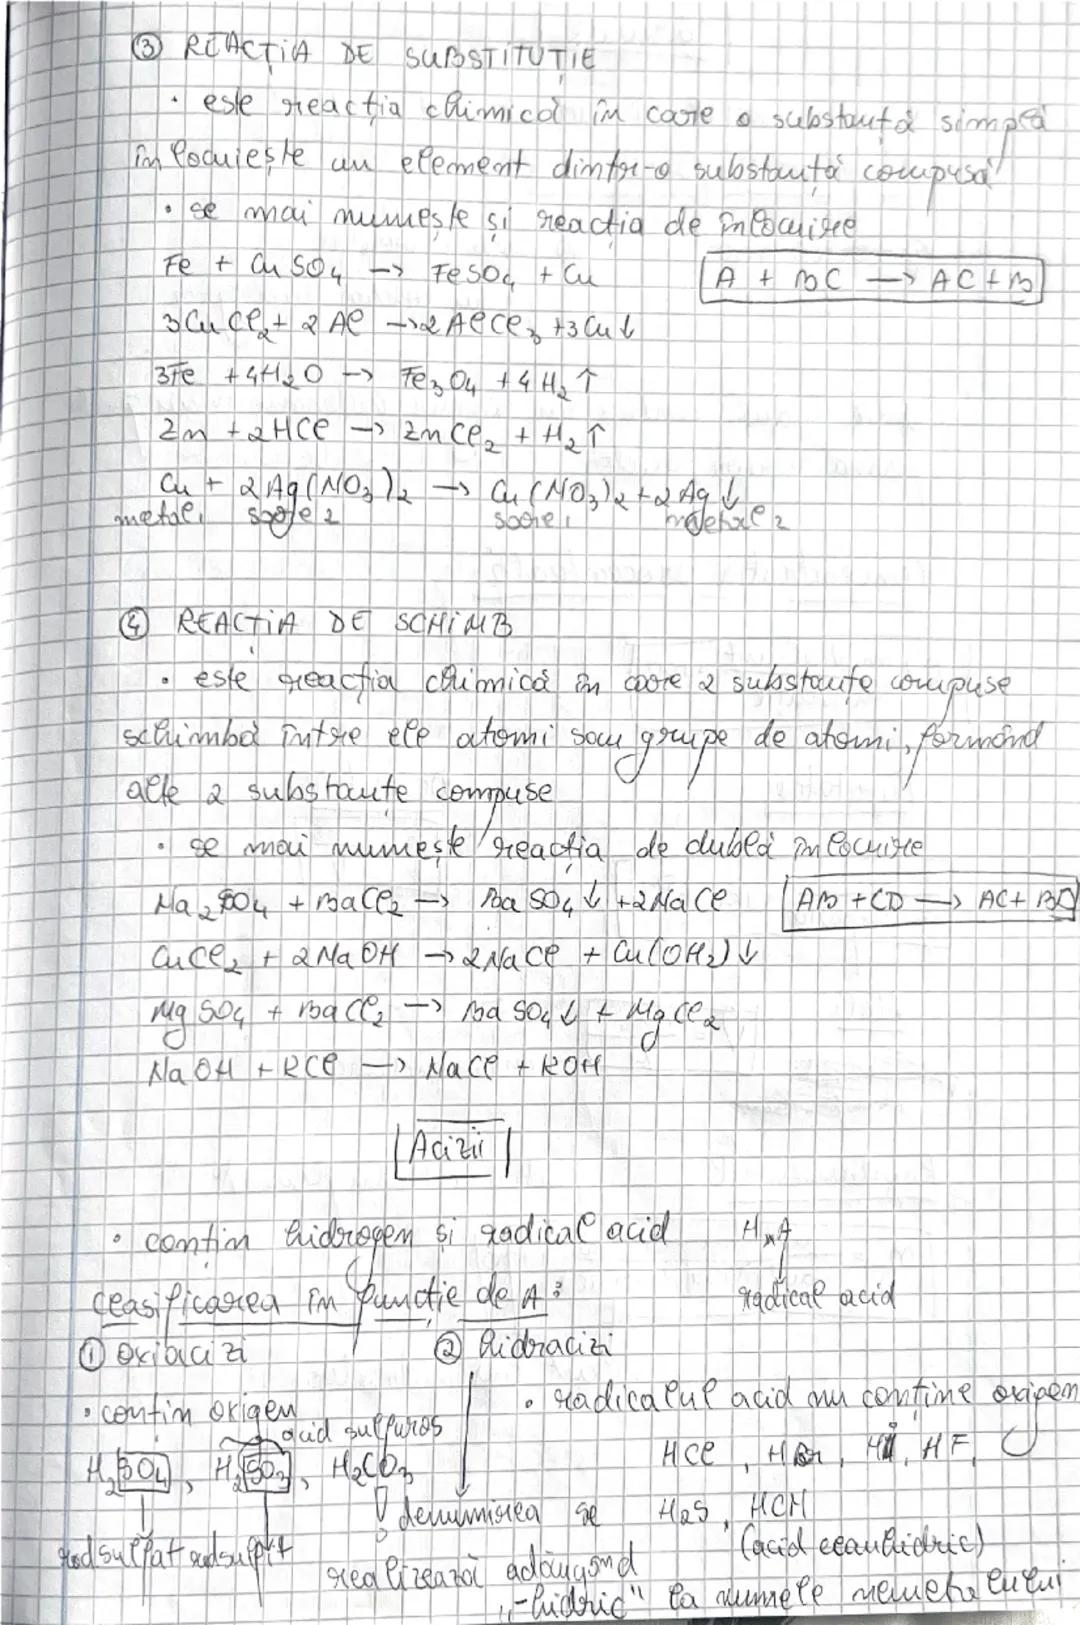 ③ REACȚIA DE SUBSTITUȚIE
• este reacția chimică în care o substanță simplă
înlocuiește un element dintr-o substanță compusă
• se mai numește și reacția de înlocuire
Fe + CuSO₄ → FeSO₄ + Cu
A + BC → AC + B
3CuCl₂ + 2Al → 2AlCl₃ + 3Cu↓
3Fe + 4H₂O → Fe₃O₄ + 4H₂↑
Zn + 2HCl → ZnCl₂ + H₂↑
Cu + 2Ag(NO₃)₂ → Cu(NO₃)₂ + 2Ag↓
metal₁ sare 2 sare₁ metal 2
④ REACȚIA DE SCHIMB
• este reacția chimică în care 2 substanțe compuse
schimbă între ele atomi sau grupe de atomi, formând
alte 2 substanțe compuse
• se mai numește reacția de dublă înlocuire
Na₂SO₄ + BaCl₂ → BaSO₄↓ + 2NaCl
AB + CD → AC + BD
CuCl₂ + 2NaOH → 2NaCl + Cu(OH₂)↓
MgSO₄ + BaCl₂ → BaSO₄↓ + MgCl₂
NaOH + KCl → NaCl + KOH
Acizii
• conțin hidrogen și radical acid HₙA
radical acid
Clasificarea în funcție de A:
① oxiacizi ② hidracizi
• conțin oxigen
• radicalul acid nu conține oxigen
acid sulfuros
H₂SO₄, H₂SO₃, H₂CO₃
HCl, HBr, HI, HF,
denumirea se
H₂S, HCN
rad sulfat rad sulfit
(acid cianhidric)
realizează adăugând
„-hidric" la numele nemetalului